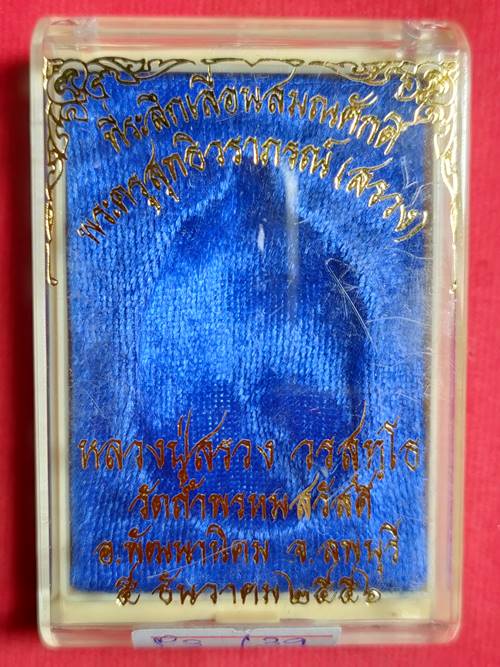 ที่ระลึกเลื่อนสมณศักดิ์
พระครูสุทธิวราภรณ์ (สรวง)
หลวงปู่สรวง วรสุทฺโธ
วัดถ้ำพรหมสวัสดิ์
อ.พัฒนานิคม จ.ลพบุรี
๕ ธันวาคม ๒๕๕๖